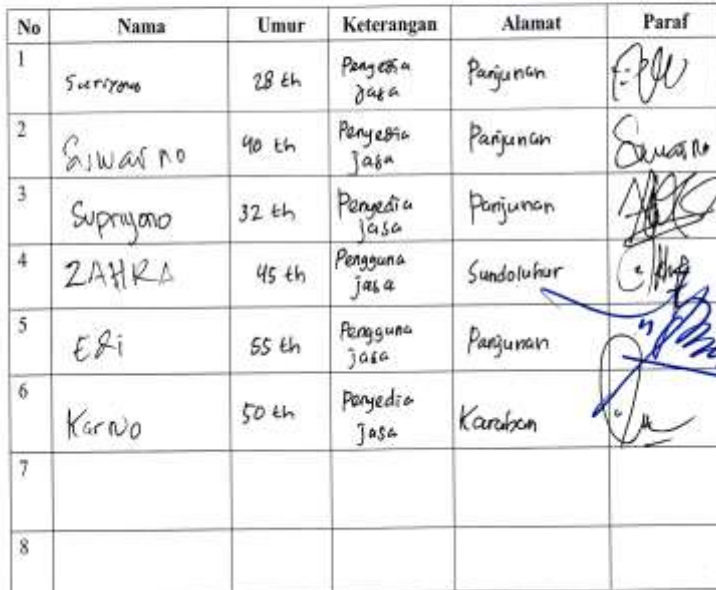 No Nama Umur Keterangan Alamat Paraf
1 Suriyono 28 th Penyedia Jasa Panjunan
2 Siwarno 40 th Penyedia Jasa Panjunan Suwarno
3 Supriyono 32 th Penyedia Jasa Panjunan
4 ZAHRA 45 th Pengguna jasa Sundoluhur
5 Edi 55 th Pengguna jasa Panjunan
6 Karno 50 th Penyedia Jasa Karaban
7
8